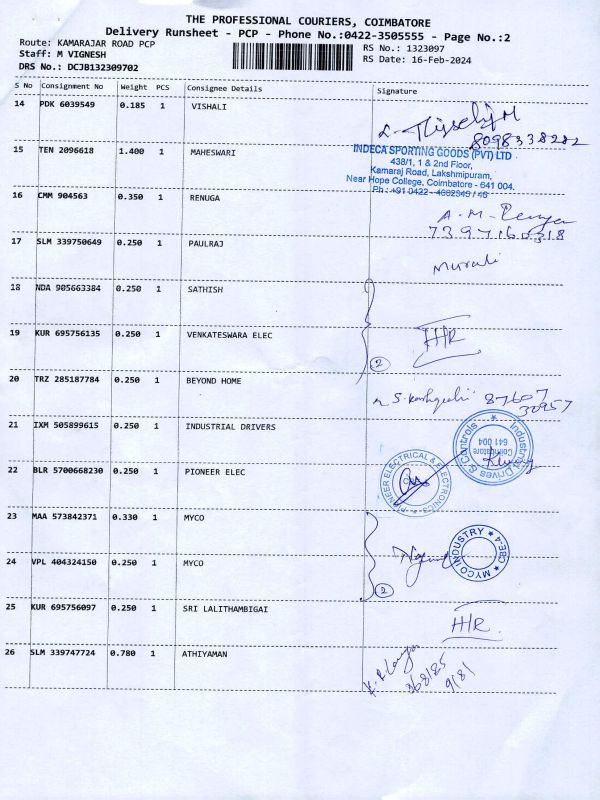 THE PROFESSIONAL COURIERS, COIMBATORE
Delivery Runsheet - PCP - Phone No.:0422-3505555 - Page No.:2
Route: KAMARAJAR ROAD PCP
RS No.: 1323097
Staff: M VIGNESH
RS Date: 16-Feb-2024
DRS No.: DCJB132309702
S No Consignment No Weight PCS Consignee Details Signature
14 PDK 6039549 0.185 1 VISHALI
8098338282
15 TEN 2096618 1.400 1 MAHESWARI
INDECA SPORTING GOODS (PVT) LTD
438/1, 1 & 2nd Floor,
Kamaraj Road, Lakshmipuram,
Near Hope College, Coimbatore - 641 004.
16 CMM 904563 0.350 1 RENUGA
A. M.
17 SLM 339750649 0.250 1 PAULRAJ
Murali
18 NDA 905663384 0.250 1 SATHISH
19 KUR 695756135 0.250 1 VENKATESWARA ELEC
H/R
2
20 TRZ 285187784 0.250 1 BEYOND HOME
87607
30957
21 IXM 505899615 0.250 1 INDUSTRIAL DRIVERS
Industrial Drives & Controls
Coimbatore
641 004
22 BLR 5700668230 0.250 1 PIONEER ELEC
PIONEER ELECTRICAL & ELECTRONICS
23 MAA 573842371 0.330 1 MYCO
MYCO INDUSTRY
CBE-4
24 VPL 404324150 0.250 1 MYCO
2
25 KUR 695756097 0.250 1 SRI LALITHAMBIGAI
H/R.
26 SLM 339747724 0.780 1 ATHIYAMAN
9181